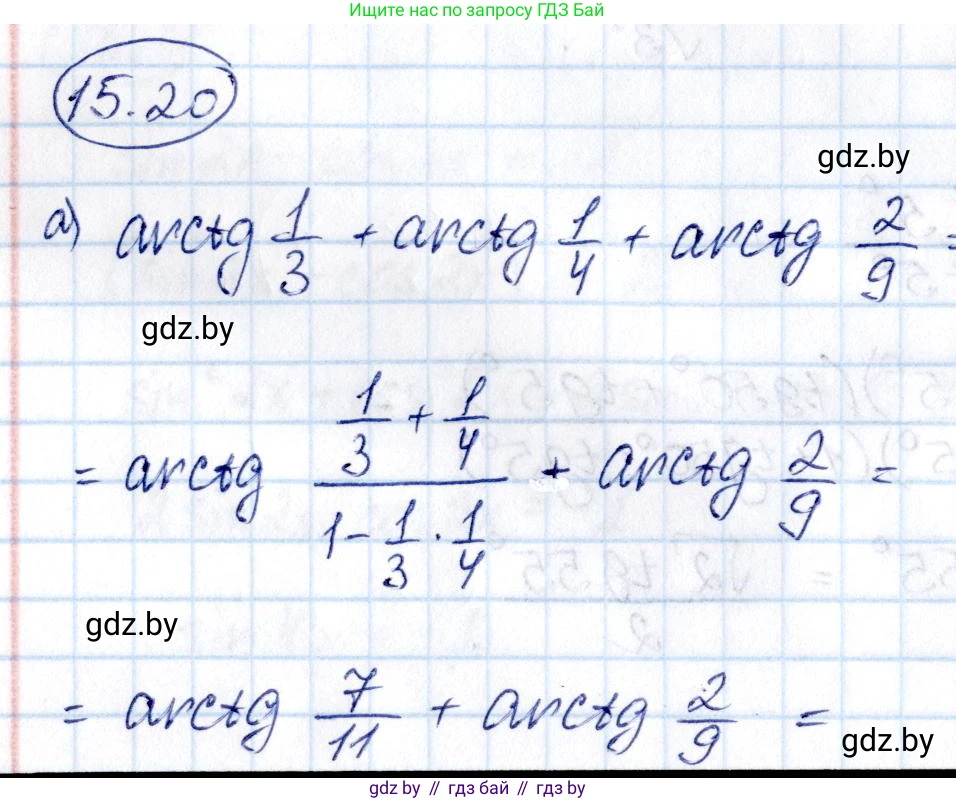 Ищите нас по запросу ГДЗ Бай
15.20
gdz.by
а) arctg 1/3 + arctg 1/4 + arctg 2/9 =
gdz.by
= arctg (1/3 + 1/4)/(1 - 1/3 · 1/4) + arctg 2/9 =
gdz.by
= arctg 7/11 + arctg 2/9 =
gdz.by
gdz.by // гдз бай // gdz.by